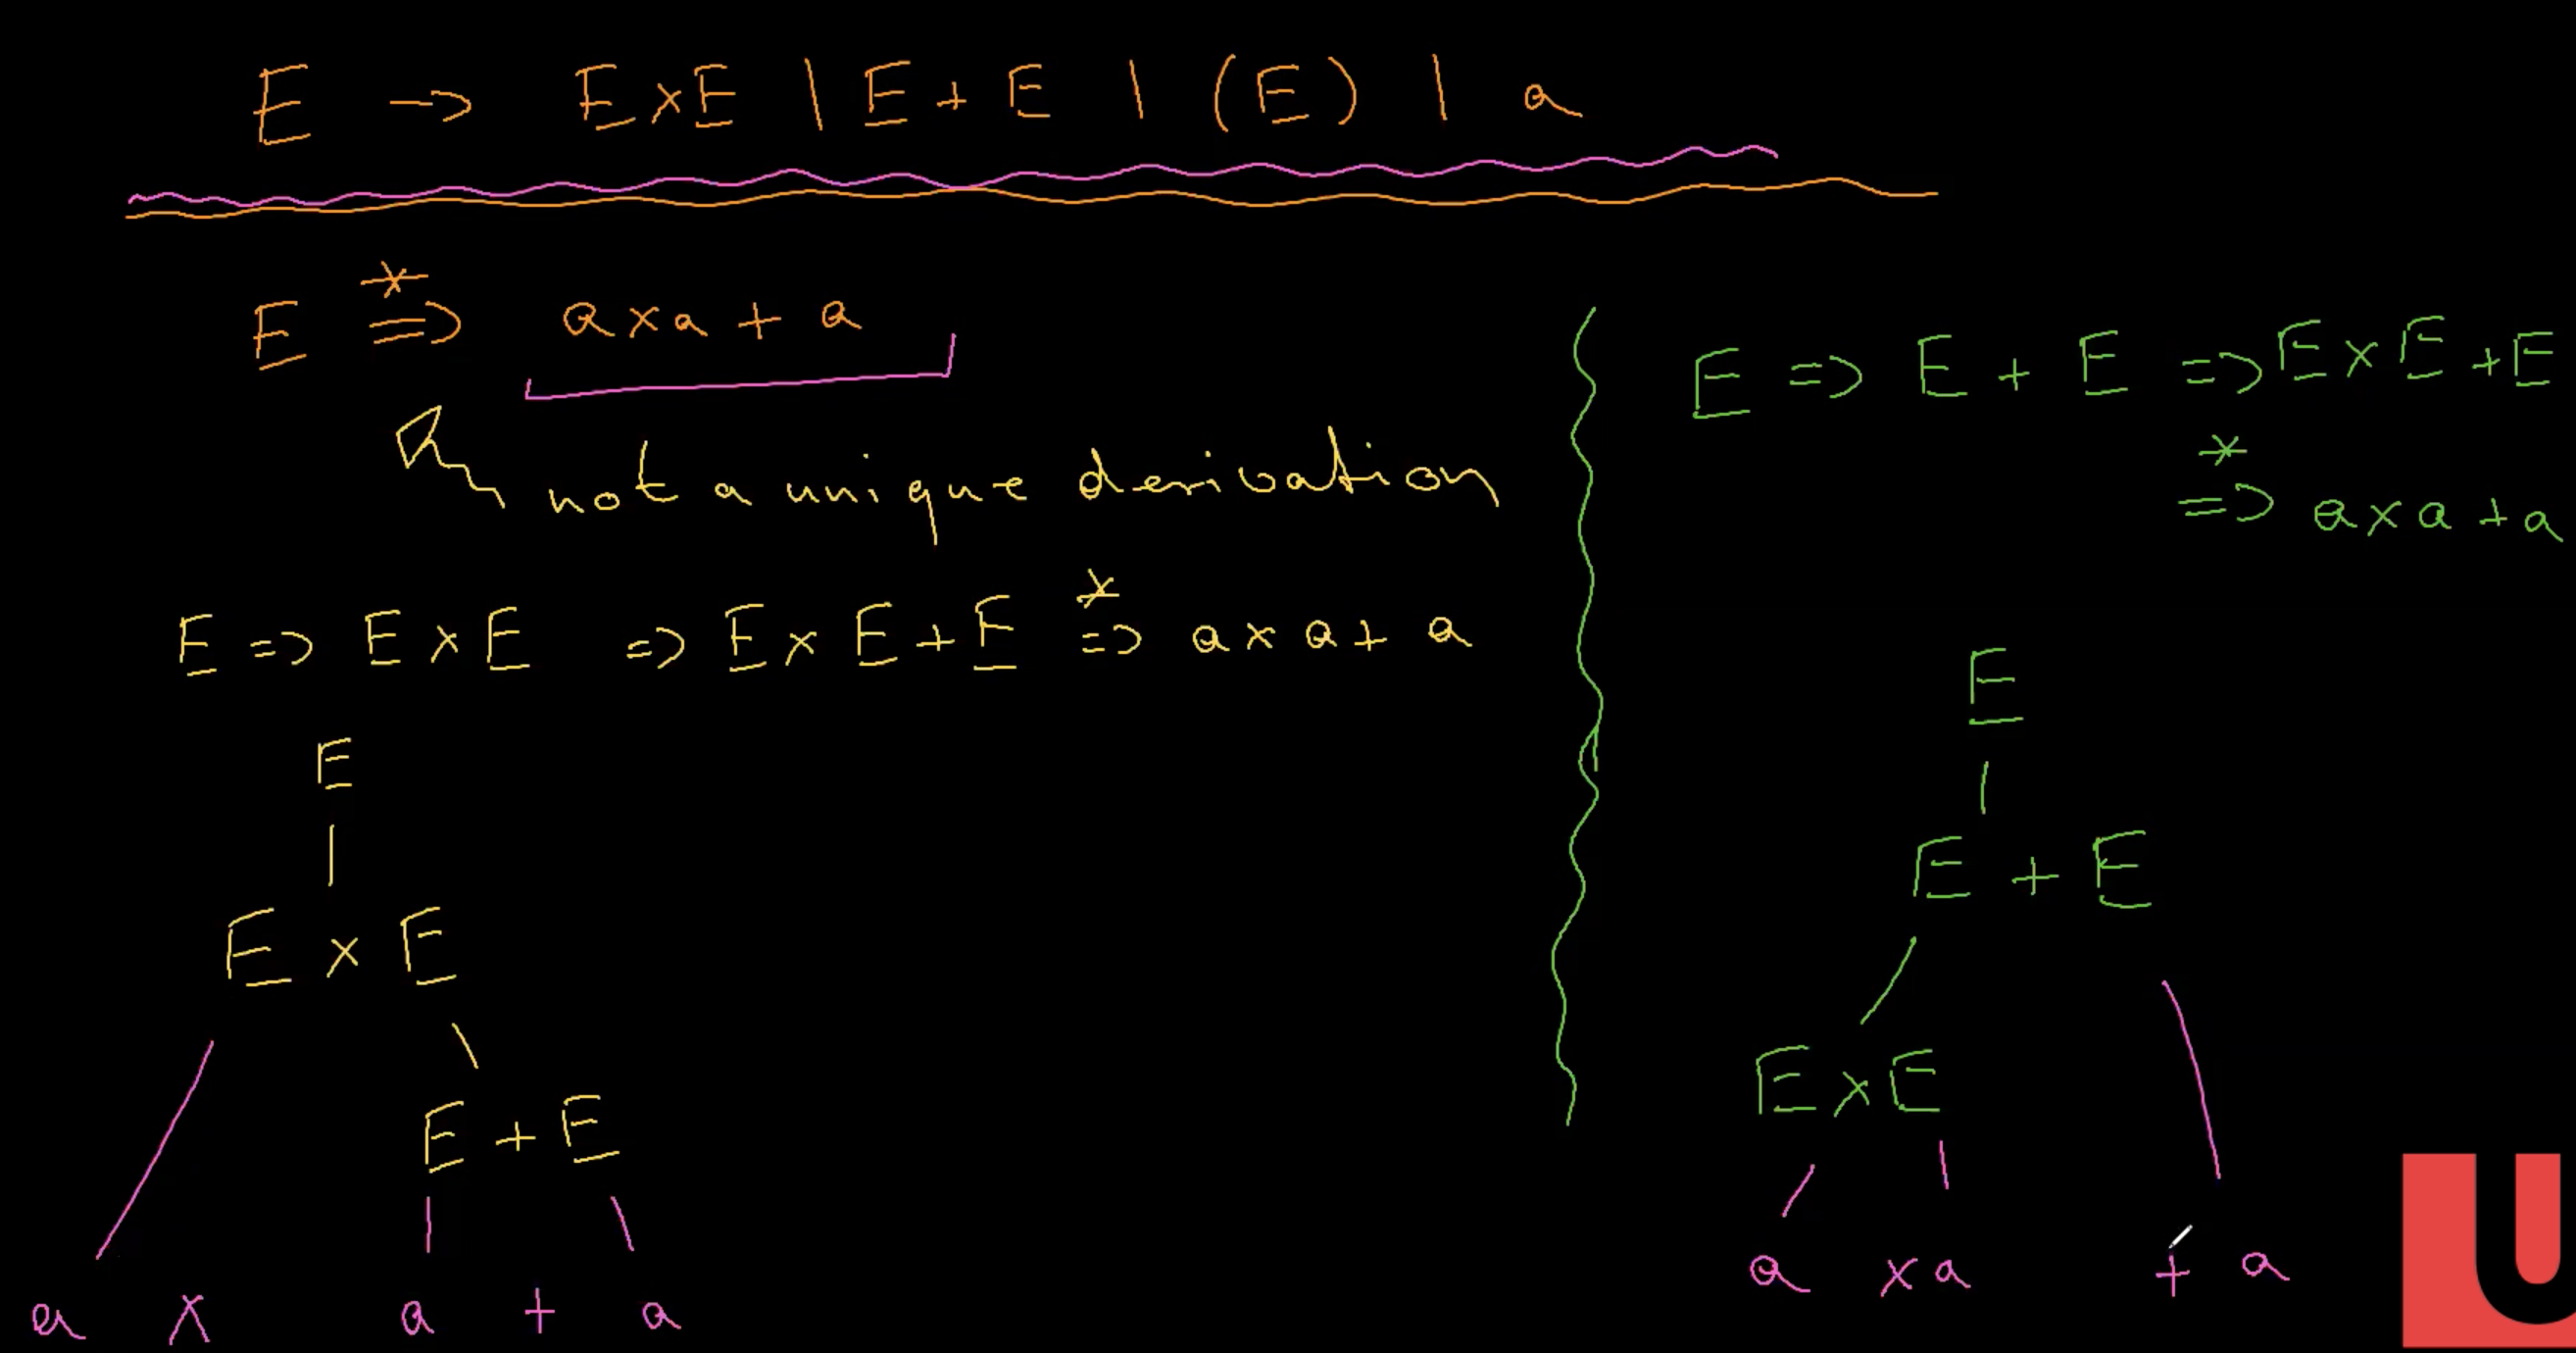 E → E×E | E + E | (E) | a
E *⇒ a×a + a
not a unique derivation
E ⇒ E×E ⇒ E×E+E *⇒ a×a+ a
E
E × E
E + E
a × a + a
E ⇒ E + E ⇒ E×E+E
*⇒ a×a+a
E
E + E
E×E
a ×a + a
U